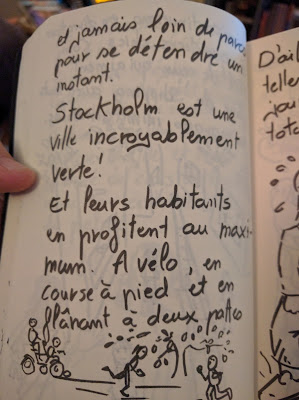 et jamais loin de parc
pour se détendre un
instant.
Stockholm est une
ville incroyablement
verte!
Et leurs habitants
en profitent au maxi-
mum. A vélo, en
course à pied et en
flânant à deux
D'ail
telle
jou
tota